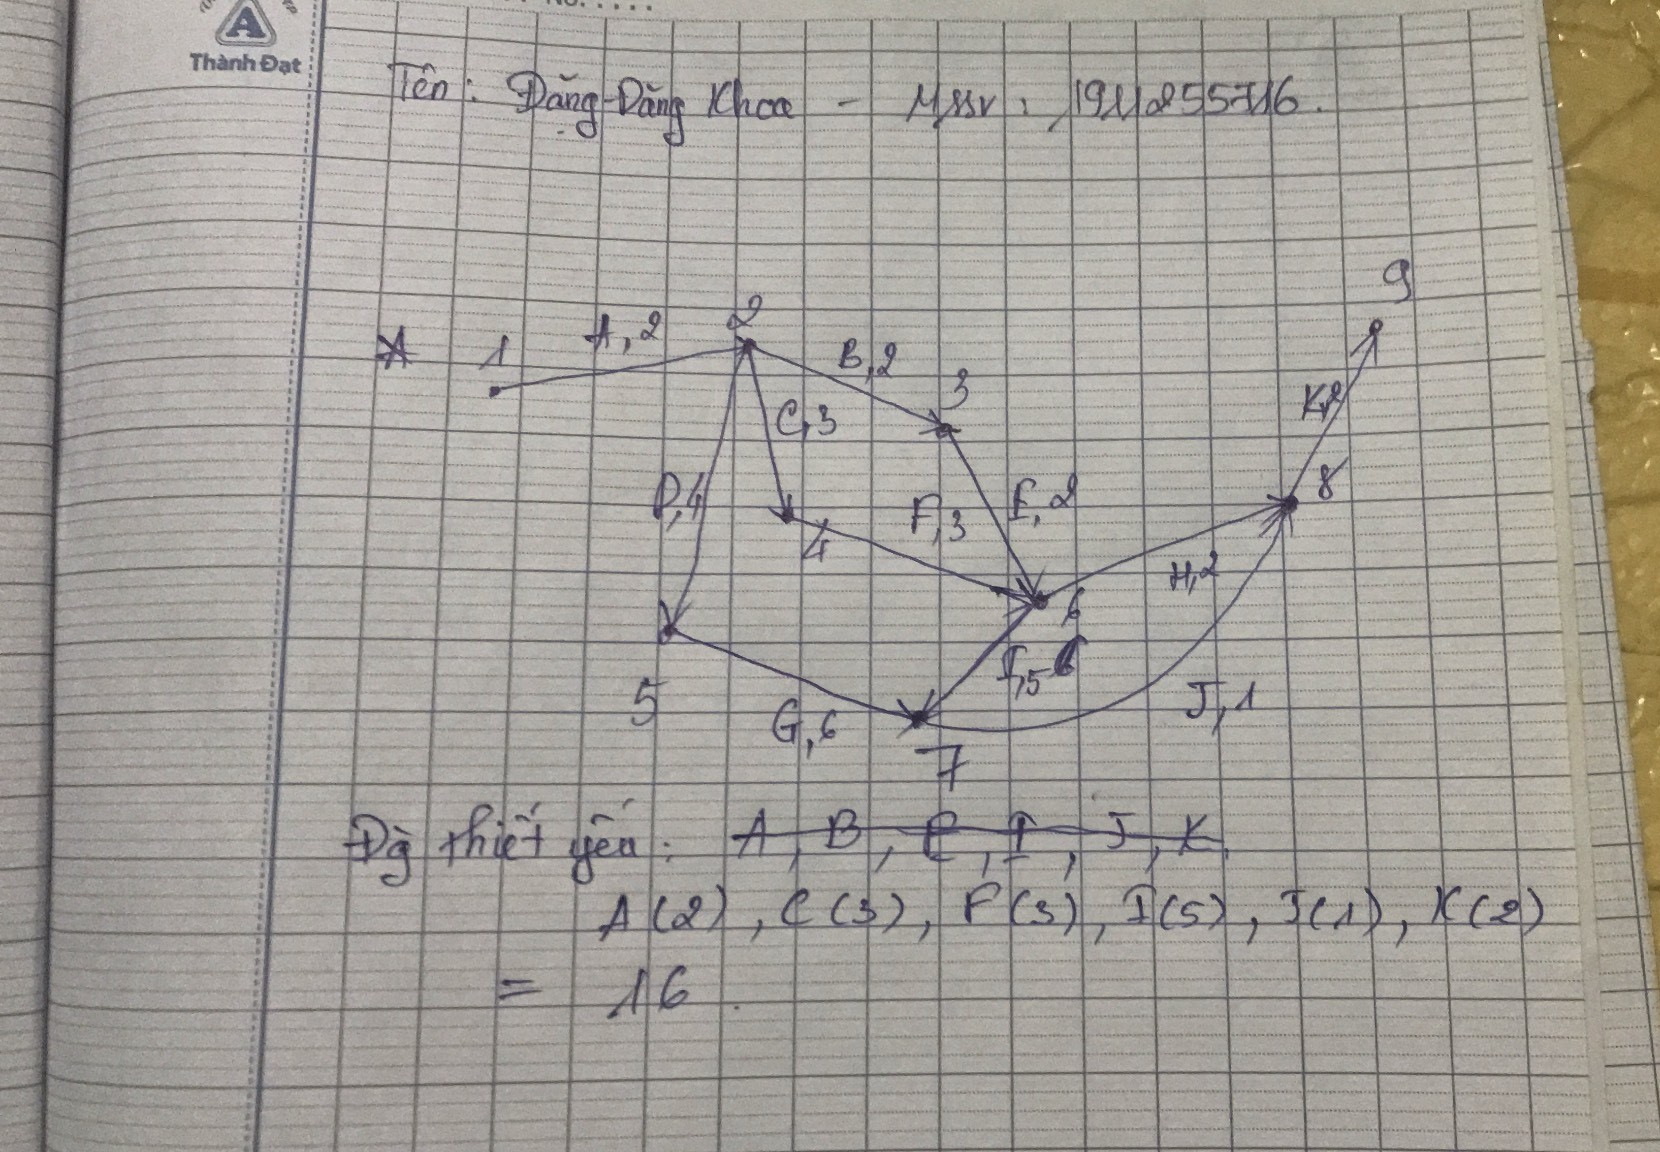 No. . . . .
A
Thành Đạt
Tên: Đặng Đăng Khoa - Mssv: 1911255716.
9
A 1 A,2 2 B,2 3
K,2
C,3
D,4 4 F,3 E,2 8
H,2
6
I,5
5 G,6 7 J,1
Đg thiết yếu: A, B, E, I, J, K.
A(2), C(3), F(3), I(5), J(1), K(2)
= 16.